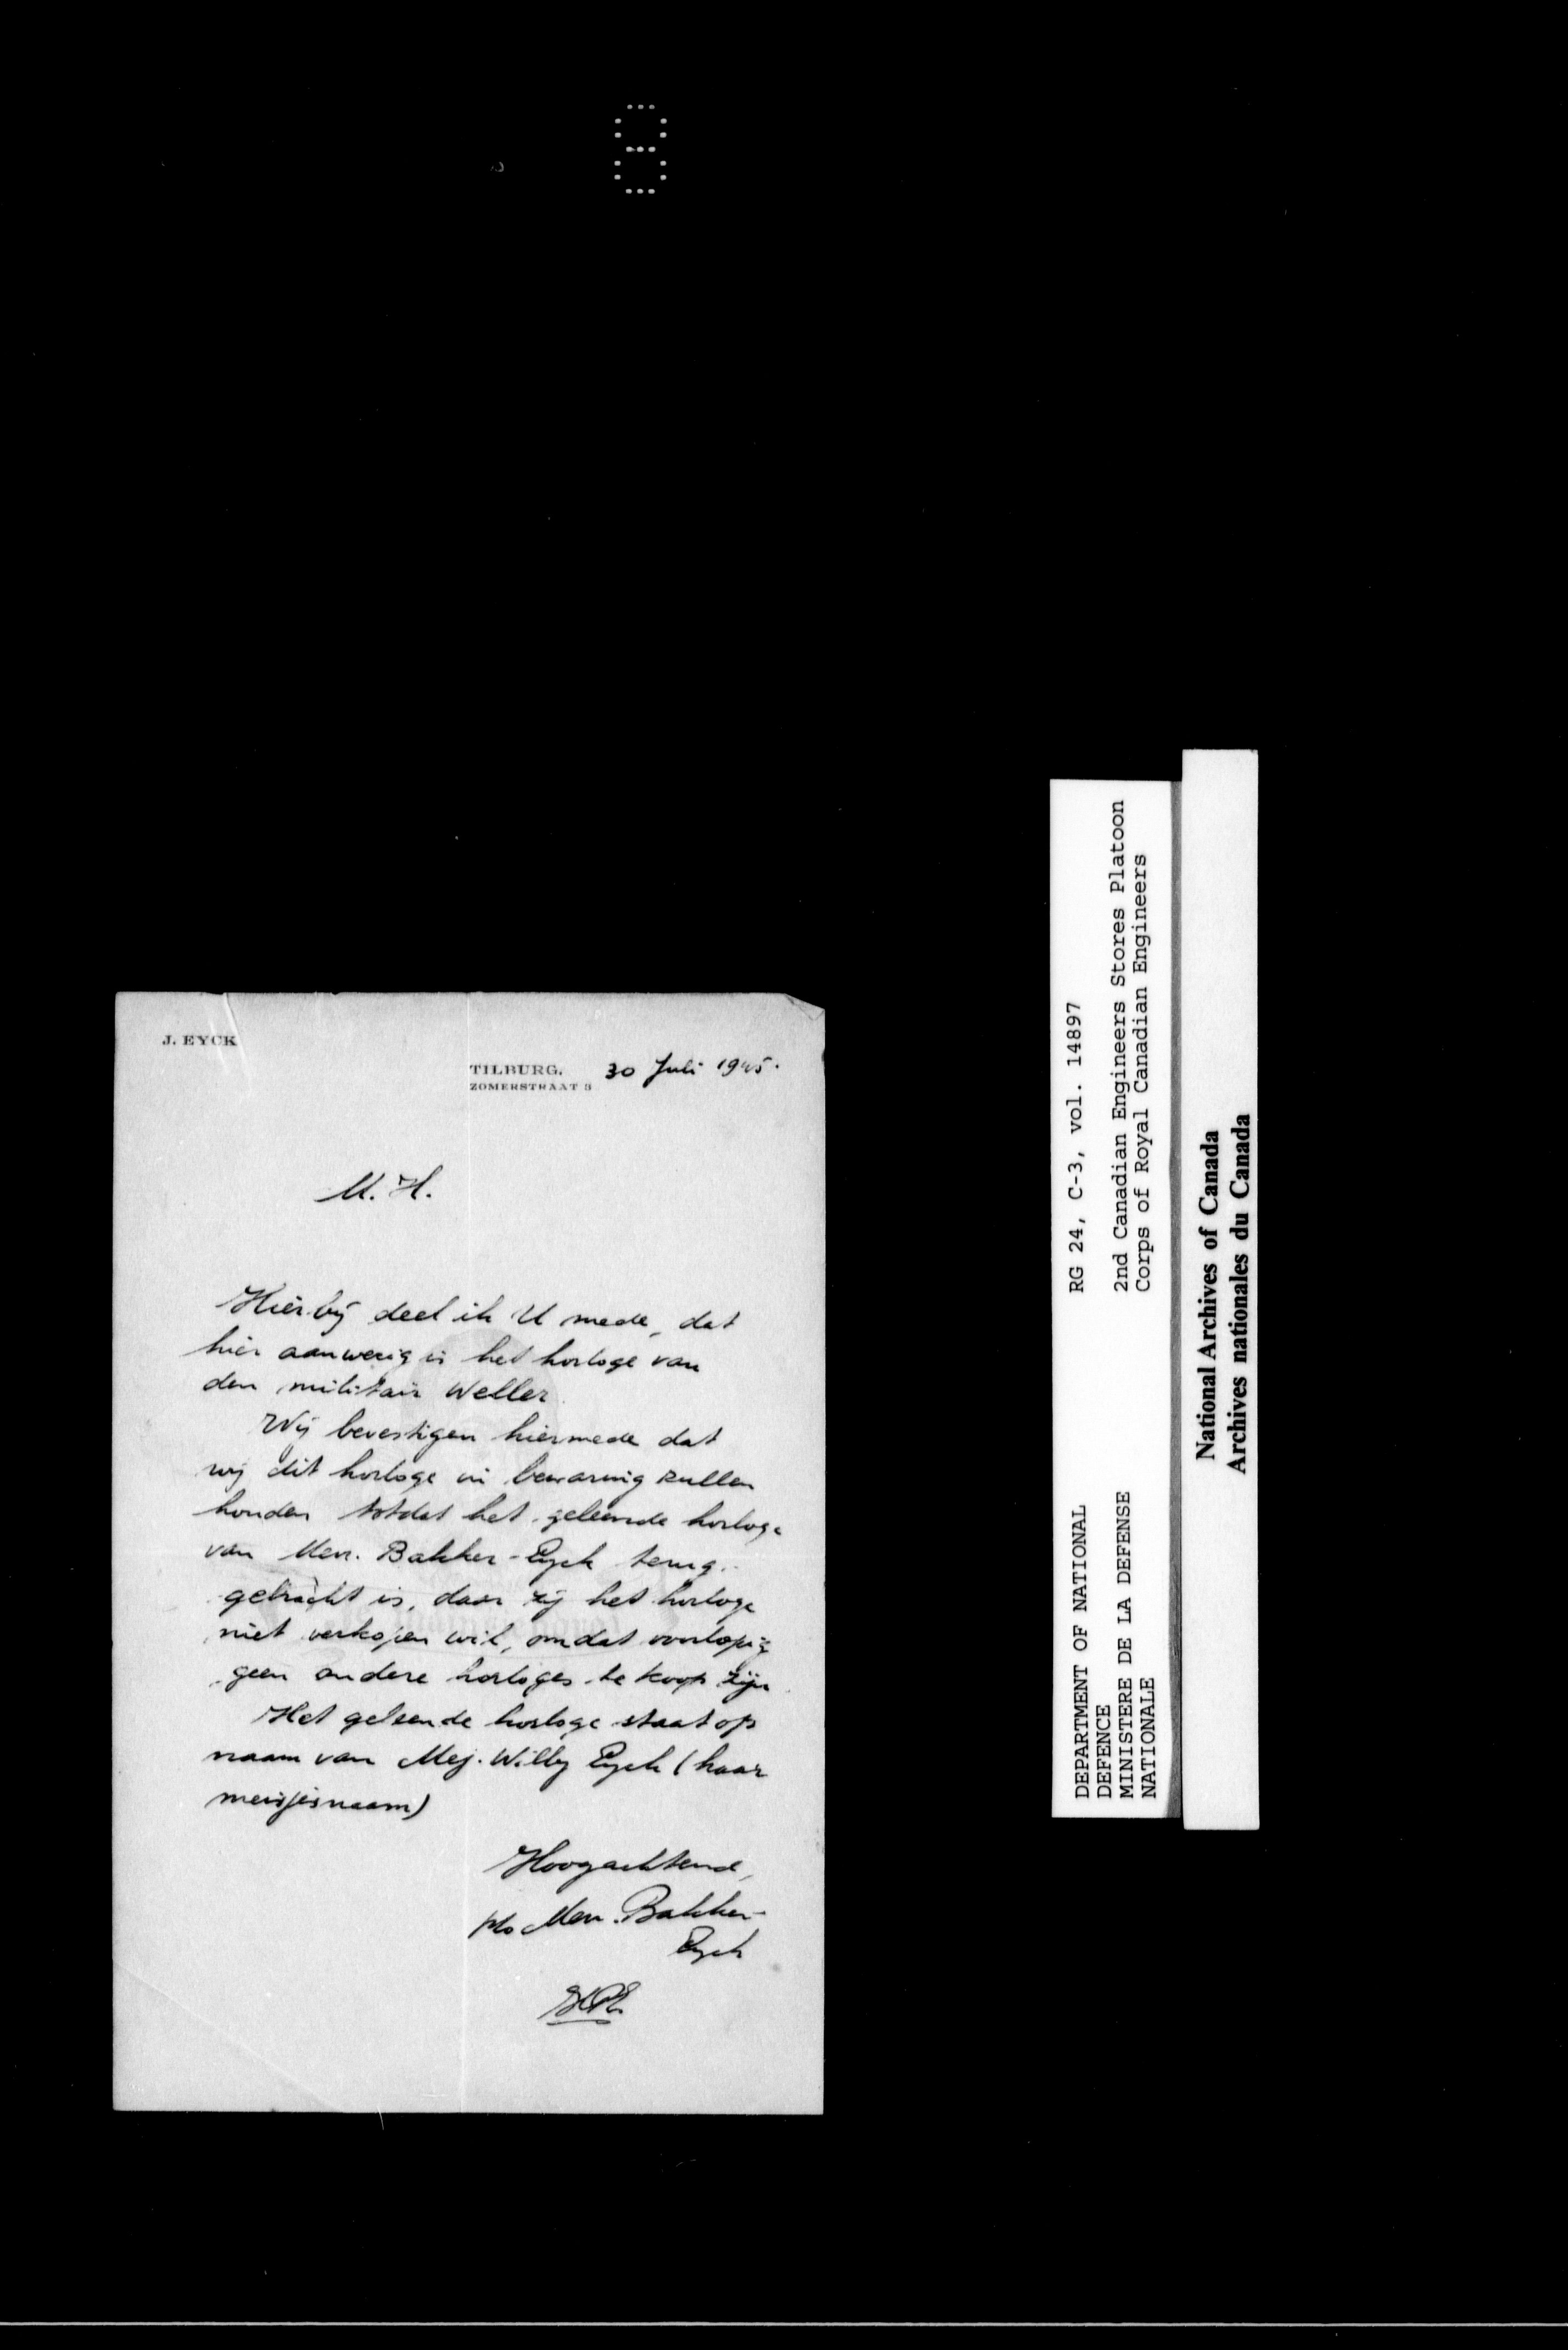 J. EYCK
TILBURG. 30 Juli 1945.
ZOMERSTRAAT 3
M. H.
Hierbij deel ik U mede, dat
hier aanwezig is het horloge van
den militair Weller.
Wij bevestigen hiermede dat
wij dit horloge in bewaring zullen
houden totdat het geleende horloge
van Mevr. Bakker-Eyck terug-
gebracht is, daar zij het horloge
niet verkopen wil, omdat voorlopig
geen andere horloges te koop zijn
Het geleende horloge staat op
naam van Mej. Willy Eyck (haar
meisjesnaam)
Hoogachtend,
Mevr. Bakker-
Eyck
RG 24, C-3, vol. 14897
2nd Canadian Engineers Stores Platoon
Corps of Royal Canadian Engineers
DEPARTMENT OF NATIONAL
DEFENCE
MINISTERE DE LA DEFENSE
NATIONALE
National Archives of Canada
Archives nationales du Canada